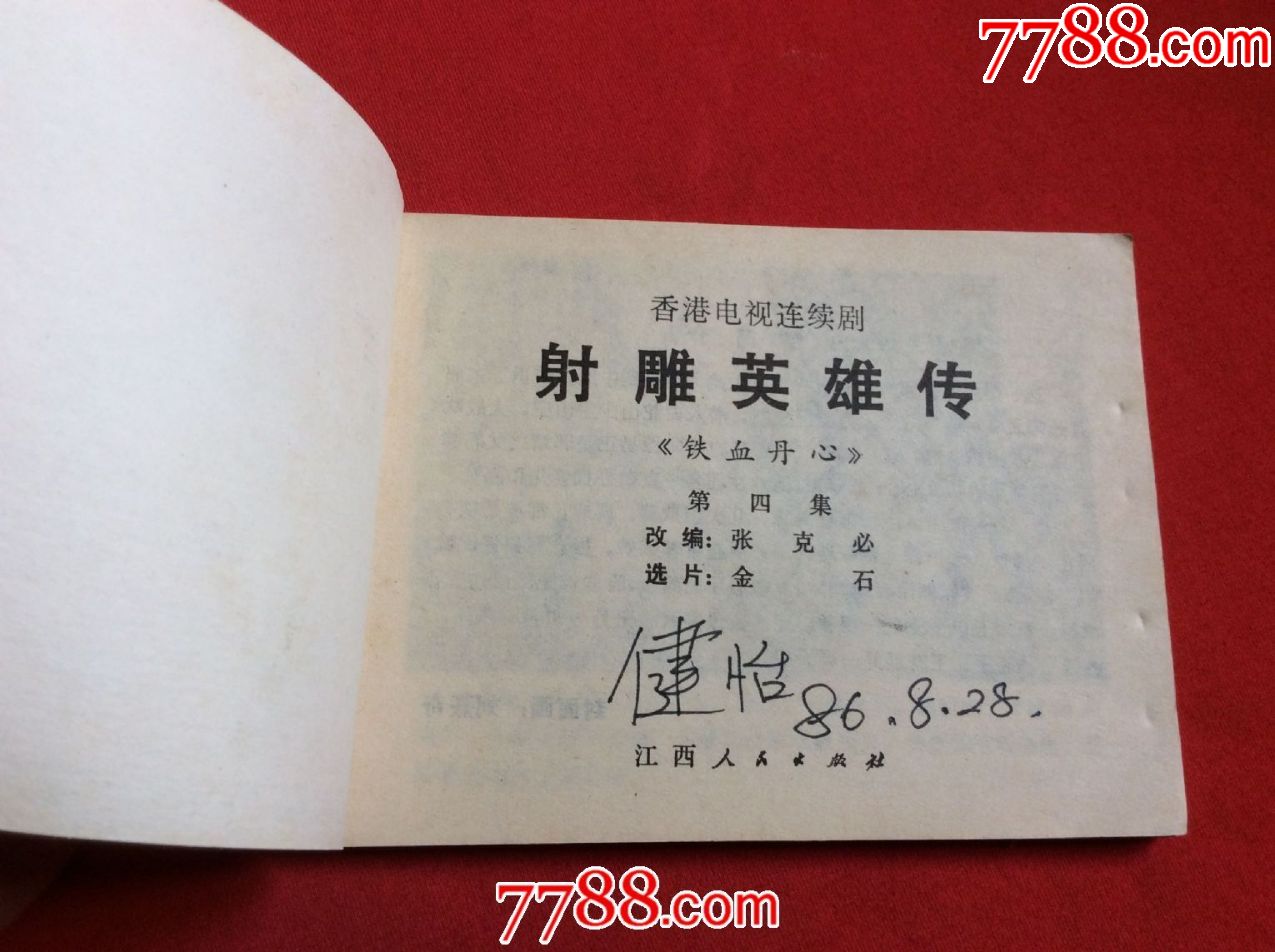 7788.com
香港电视连续剧
射雕英雄传
《铁血丹心》
第四集
改编：张克必
选片：金石
健怡 86.8.28.
江西人民出版社
7788.com